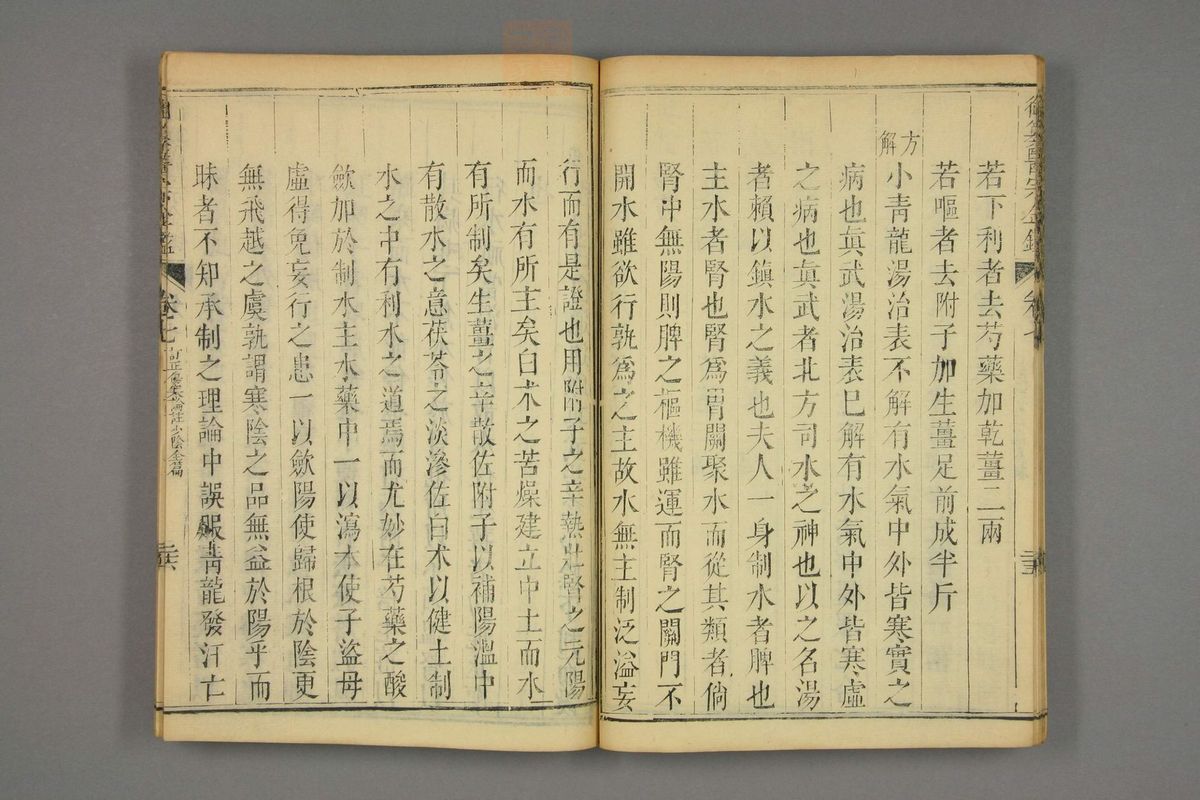 若下利者去芍藥加乾薑二兩
若嘔者去附子加生薑足前成半斤
方解
小青龍湯治表不解有水氣中外皆寒實之
病也眞武湯治表已解有水氣中外皆寒虛
之病也眞武者北方司水之神也以之名湯
者賴以鎮水之義也夫人一身制水者脾也
主水者腎也腎爲胃關聚水而從其類者倘
腎中無陽則脾之樞機雖運而腎之關門不
開水雖欲行孰爲之主故水無主制泛溢妄
行而有是證也用附子之辛熱壯腎之元陽
而水有所主矣白朮之苦燥建立中土而水
有所制矣生薑之辛散佐附子以補陽溫中
有散水之意茯苓之淡滲佐白朮以健土制
水之中有利水之道焉而尤妙在芍藥之酸
歛加於制水主水藥中一以瀉水使子盜母
虛得免妄行之患一以歛陽使歸根於陰更
無飛越之虞孰謂寒陰之品無益於陽乎而
昧者不知承制之理論中誤服靑龍發汗亡
卷七
訂正傷寒論註少陰全篇
二十六